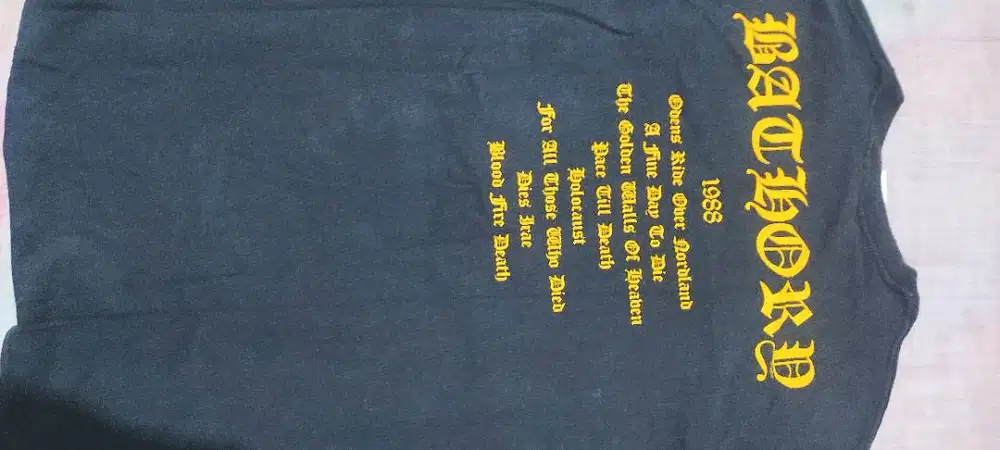 BATHORY
1988
Odens Ride Over Nordland
A Fine Day To Die
The Golden Walls Of Heaven
Pace Till Death
Holocaust
For All Those Who Died
Dies Irae
Blood Fire Death